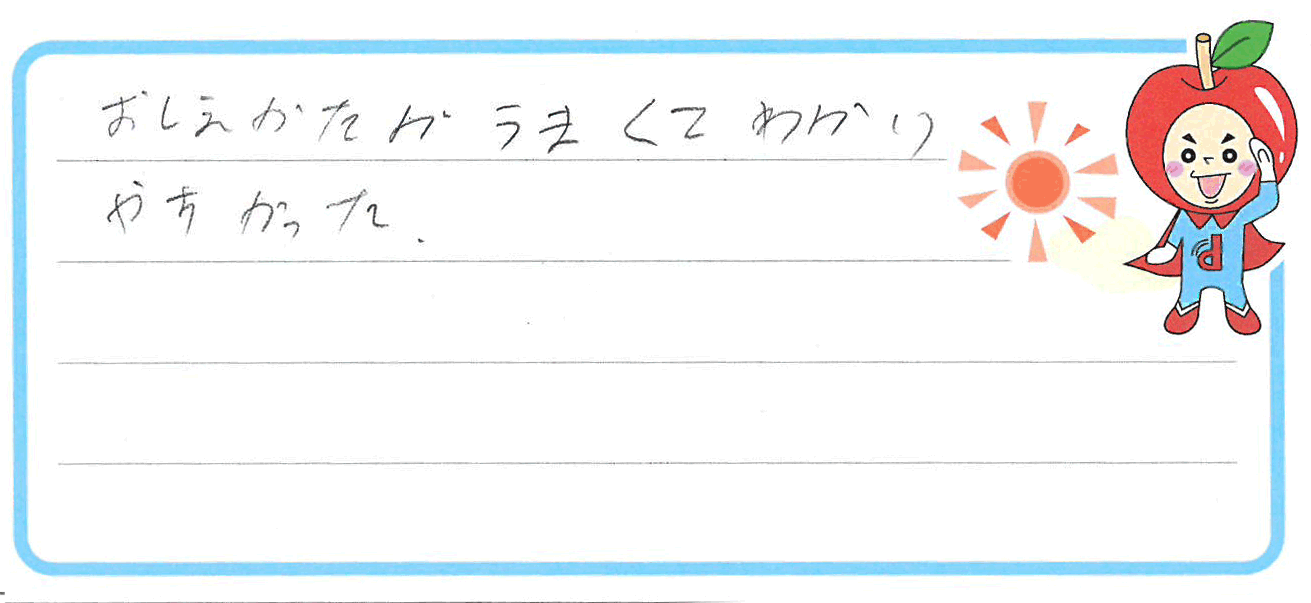 おしえかたがうまくてわかり
やすかった.